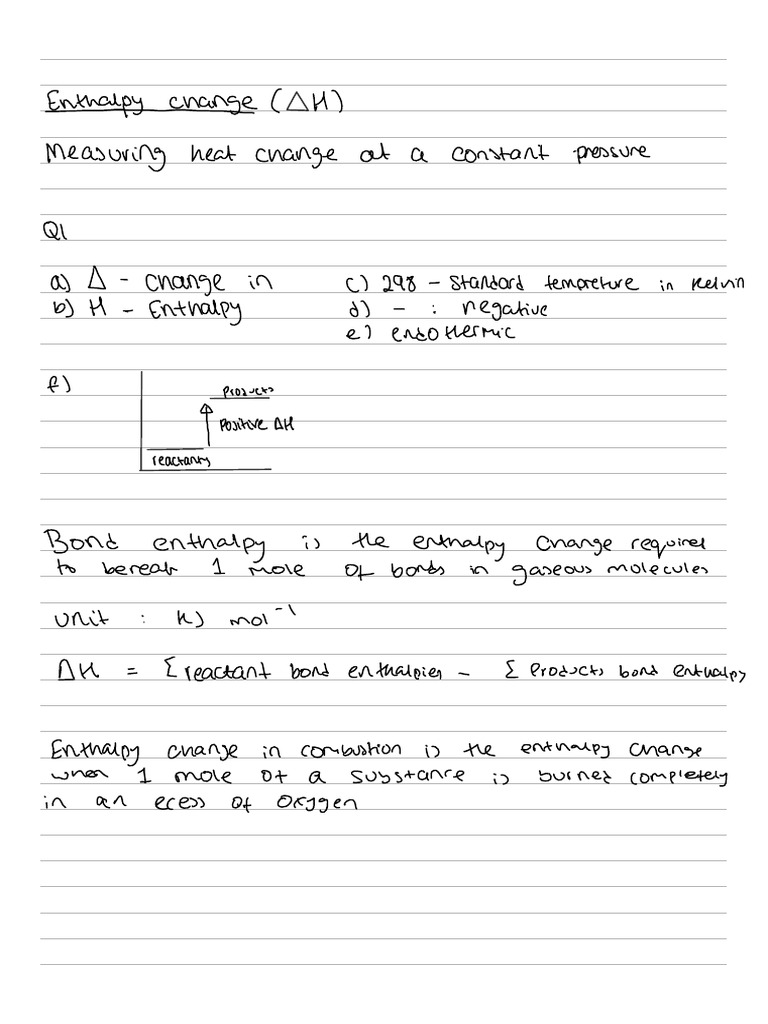 Enthalpy change (ΔH)
Measuring heat change at a constant pressure
Q1
a) Δ - change in
b) H - Enthalpy
c) 298 - Standard temoreture in Kelvin
d) - : negative
e) endothermic
f)
products
positive ΔH
reactants
Bond enthalpy is the enthalpy change required
to bereak 1 mole of bonds in gaseous molecules
unit : kJ mol⁻¹
ΔH = Σ reactant bond enthalpies - Σ Products bond enthalpy
Enthalpy change in combustion is the enthalpy change
when 1 mole of a substance is burned completely
in an ecess of oxygen